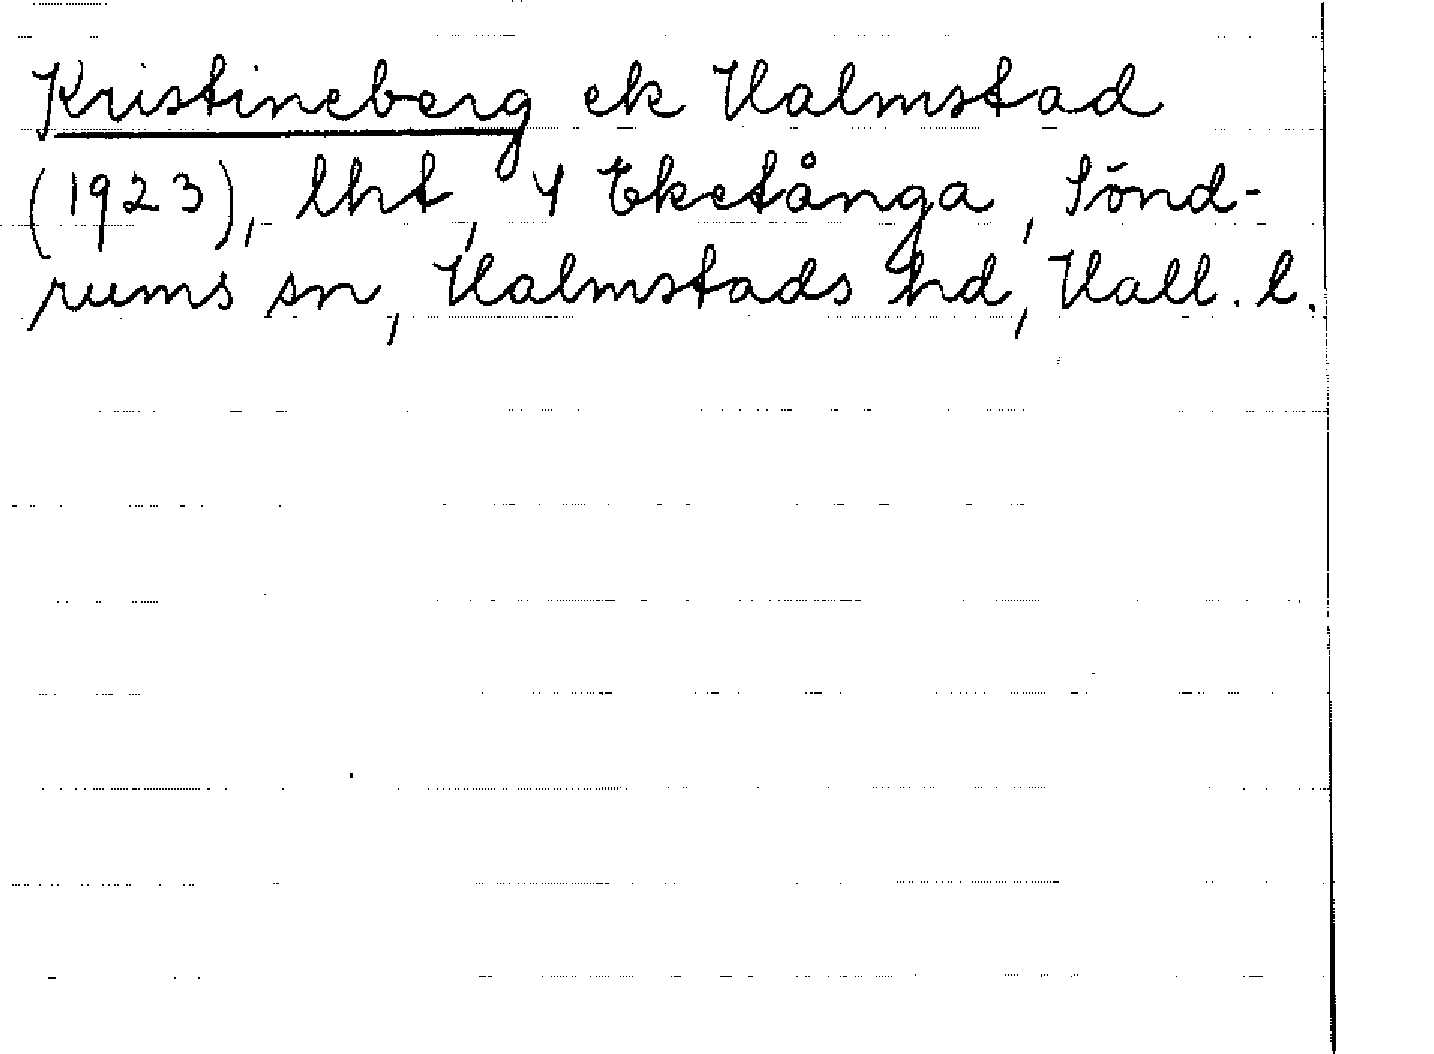 Kristineberg ek Halmstad
(1923), lht, 4 Eketånga, Sönd-
rums sn, Halmstads hd, Hall. l.